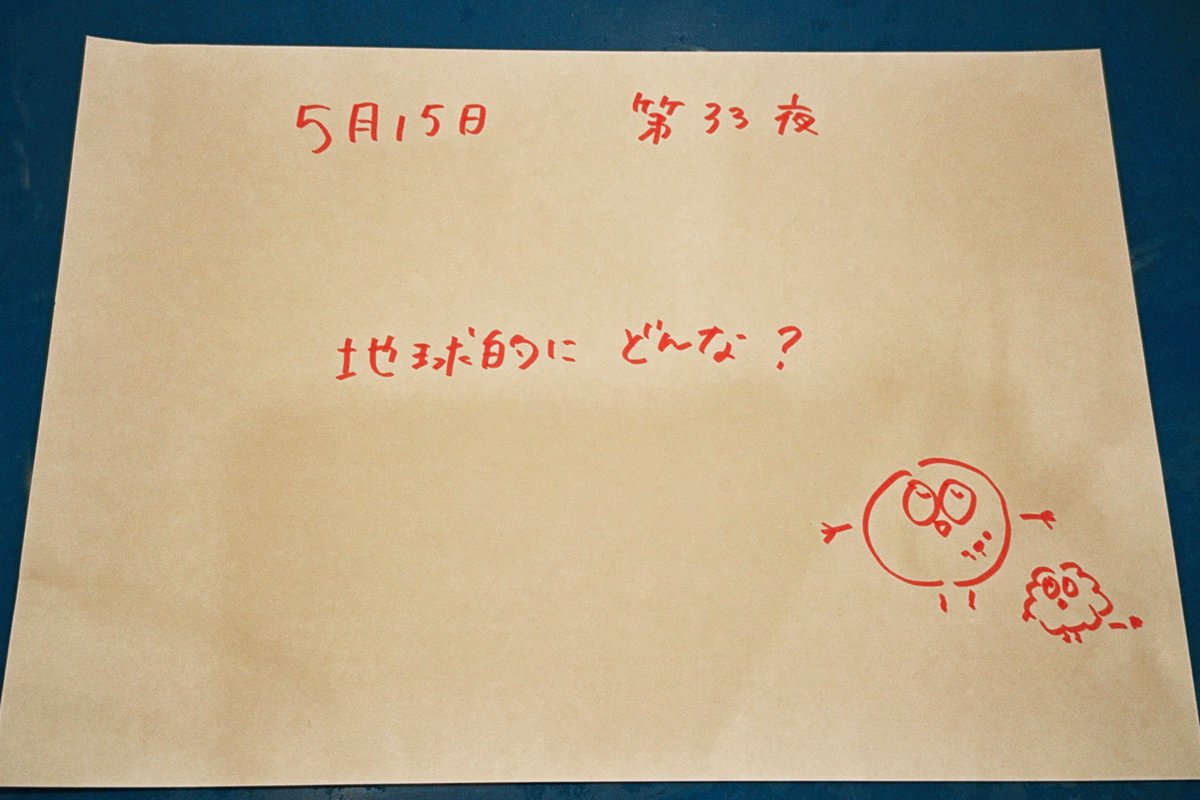 5月15日 第33夜
地球的に どんな?